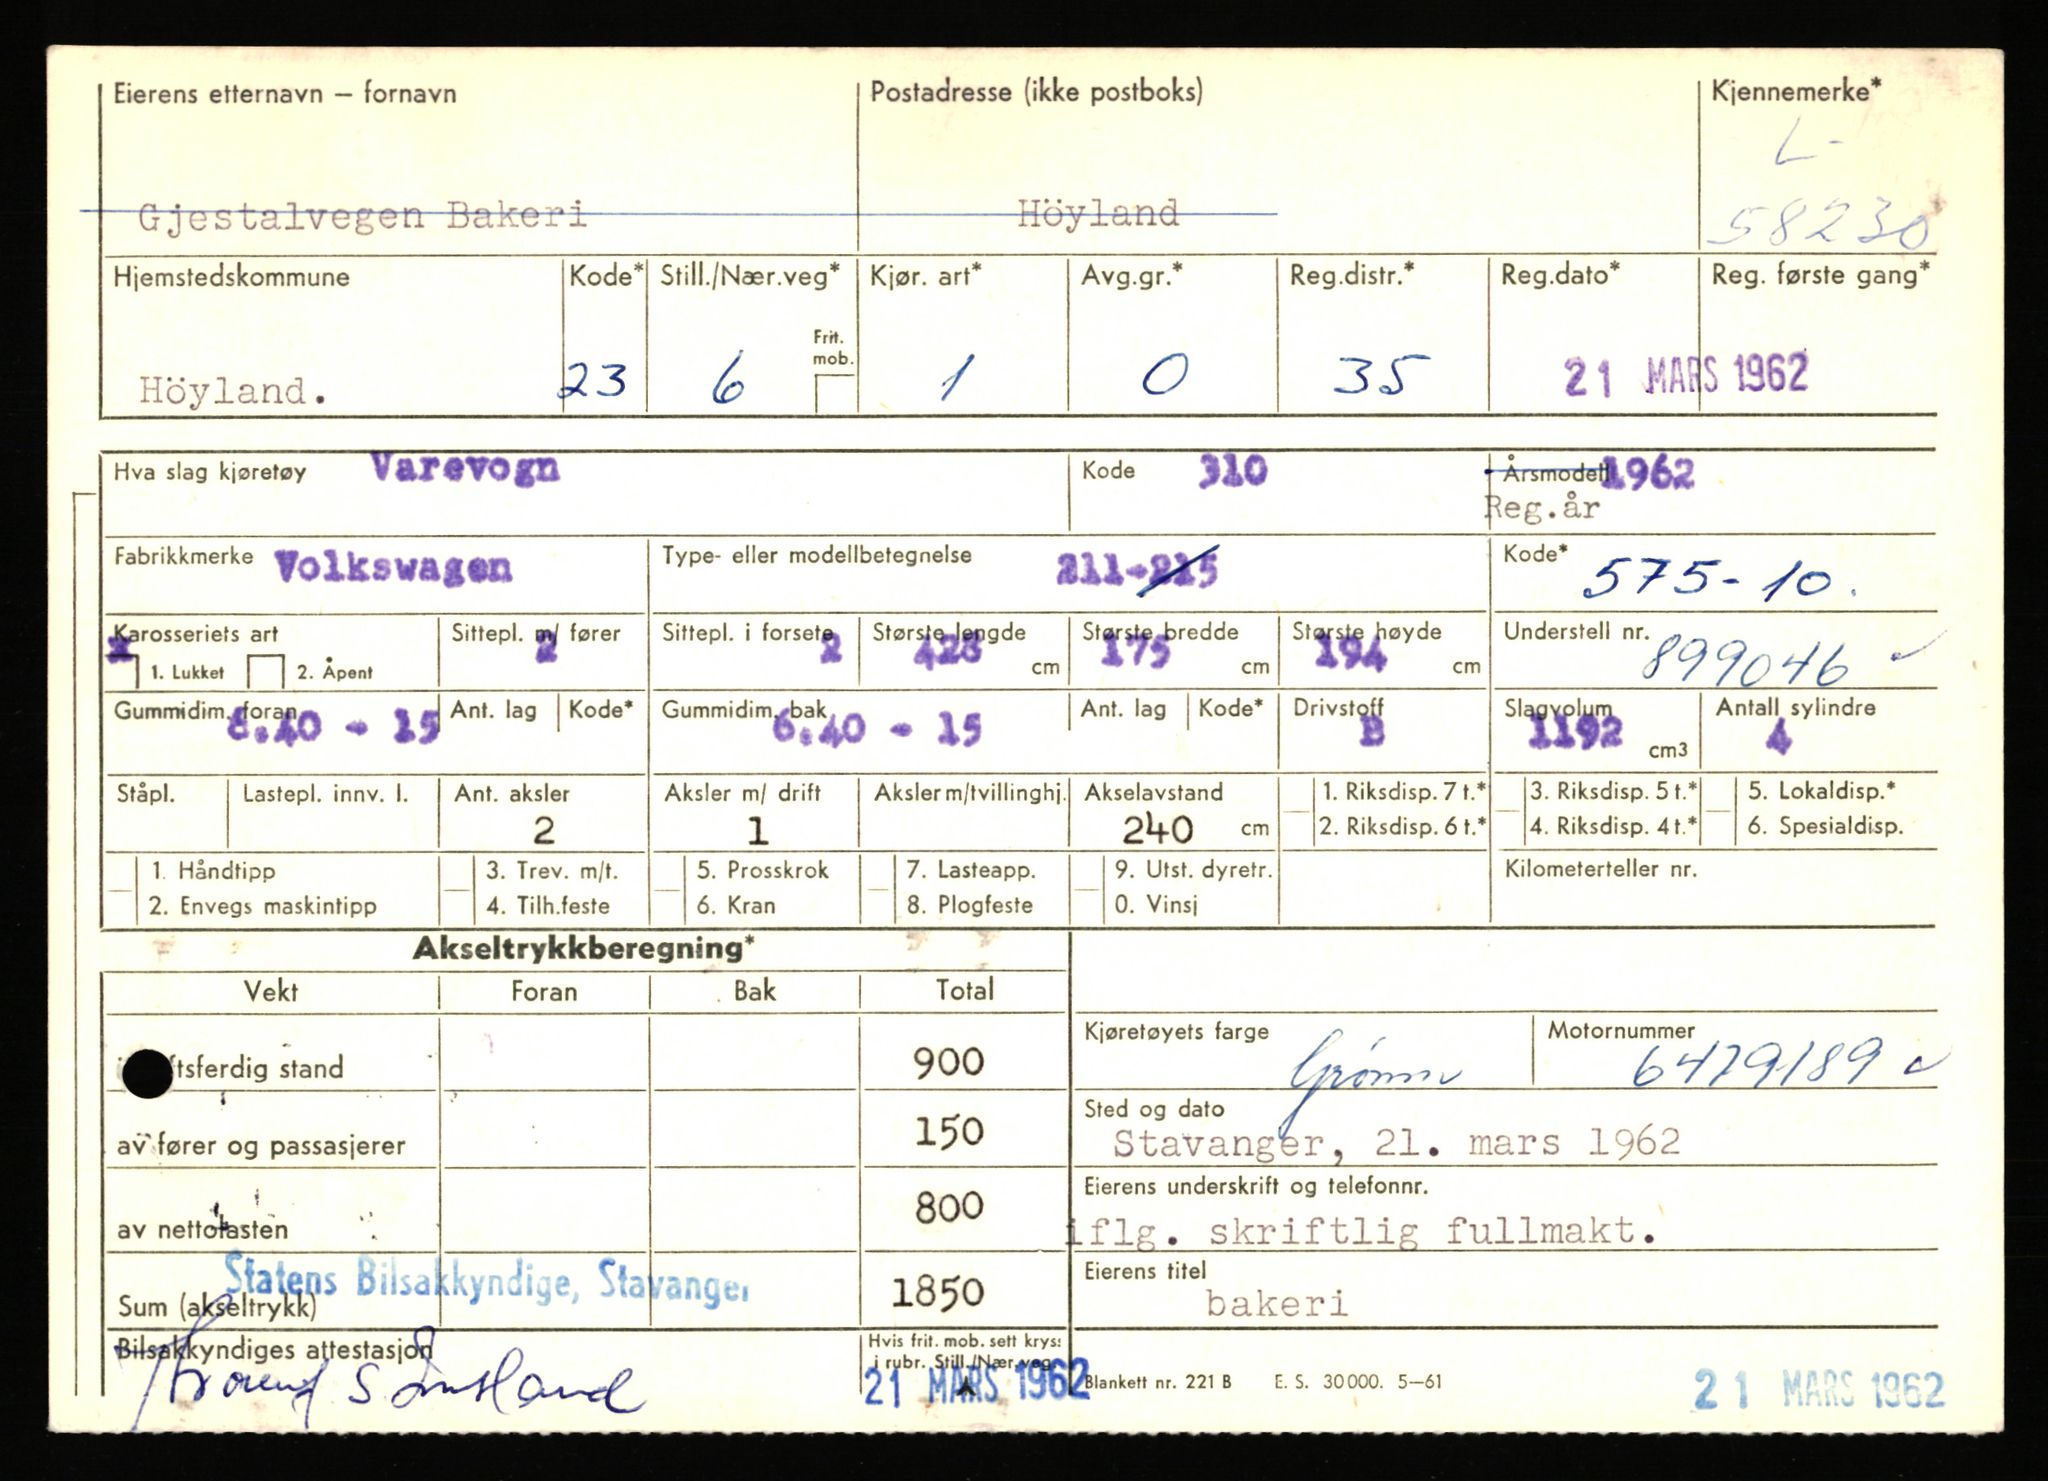 Eierens etternavn – fornavn Postadresse (ikke postboks) Kjennemerke*
L-
Gjestalvegen Bakeri Höyland 58230
Hjemstedskommune Kode* Still./Nær.veg* Kjør. art* Avg.gr.* Reg.distr.* Reg.dato* Reg. første gang*
Frit. mob.
Höyland. 23 6 1 0 35 21 MARS 1962
Hva slag kjøretøy Varevogn Kode 310 Årsmodell 1962
Reg.år
Fabrikkmerke Volkswagen Type- eller modellbetegnelse 211-215 Kode* 575-10.
Karosseriets art Sittepl. m/ fører Sittepl. i forsete Største lengde Største bredde Største høyde Understell nr.
x 1. Lukket 2. Åpent 2 2 428 cm 175 cm 194 cm 899046 ✓
Gummidim. foran Ant. lag Kode* Gummidim. bak Ant. lag Kode* Drivstoff Slagvolum Antall sylindre
6.40 - 15 6.40 - 15 B 1192 cm3 4
Ståpl. Lastepl. innv. l. Ant. aksler Aksler m/ drift Aksler m/tvillinghj. Akselavstand 1. Riksdisp. 7 t.* 3. Riksdisp. 5 t.* 5. Lokaldisp.*
2 1 240 cm 2. Riksdisp. 6 t.* 4. Riksdisp. 4 t.* 6. Spesialdisp.
1. Håndtipp 3. Trev. m/t. 5. Prosskrok 7. Lasteapp. 9. Utst. dyretr. Kilometerteller nr.
2. Envegs maskintipp 4. Tilh.feste 6. Kran 8. Plogfeste 0. Vinsj
Akseltrykkberegning*
Vekt Foran Bak Total
tsferdig stand 900
av fører og passasjerer 150
av nettolasten 800
Statens Bilsakkyndige, Stavanger
Sum (akseltrykk) 1850
Bilsakkyndiges attestasjon
Hvis frit. mob. sett kryss
i rubr. Still./Nær.veg.
21 MARS 1962
Kjøretøyets farge Grønn Motornummer 6479189 ✓
Sted og dato
Stavanger, 21. mars 1962
Eierens underskrift og telefonnr.
iflg. skriftlig fullmakt.
Eierens titel
bakeri
Blankett nr. 221 B E. S. 30000. 5–61 21 MARS 1962